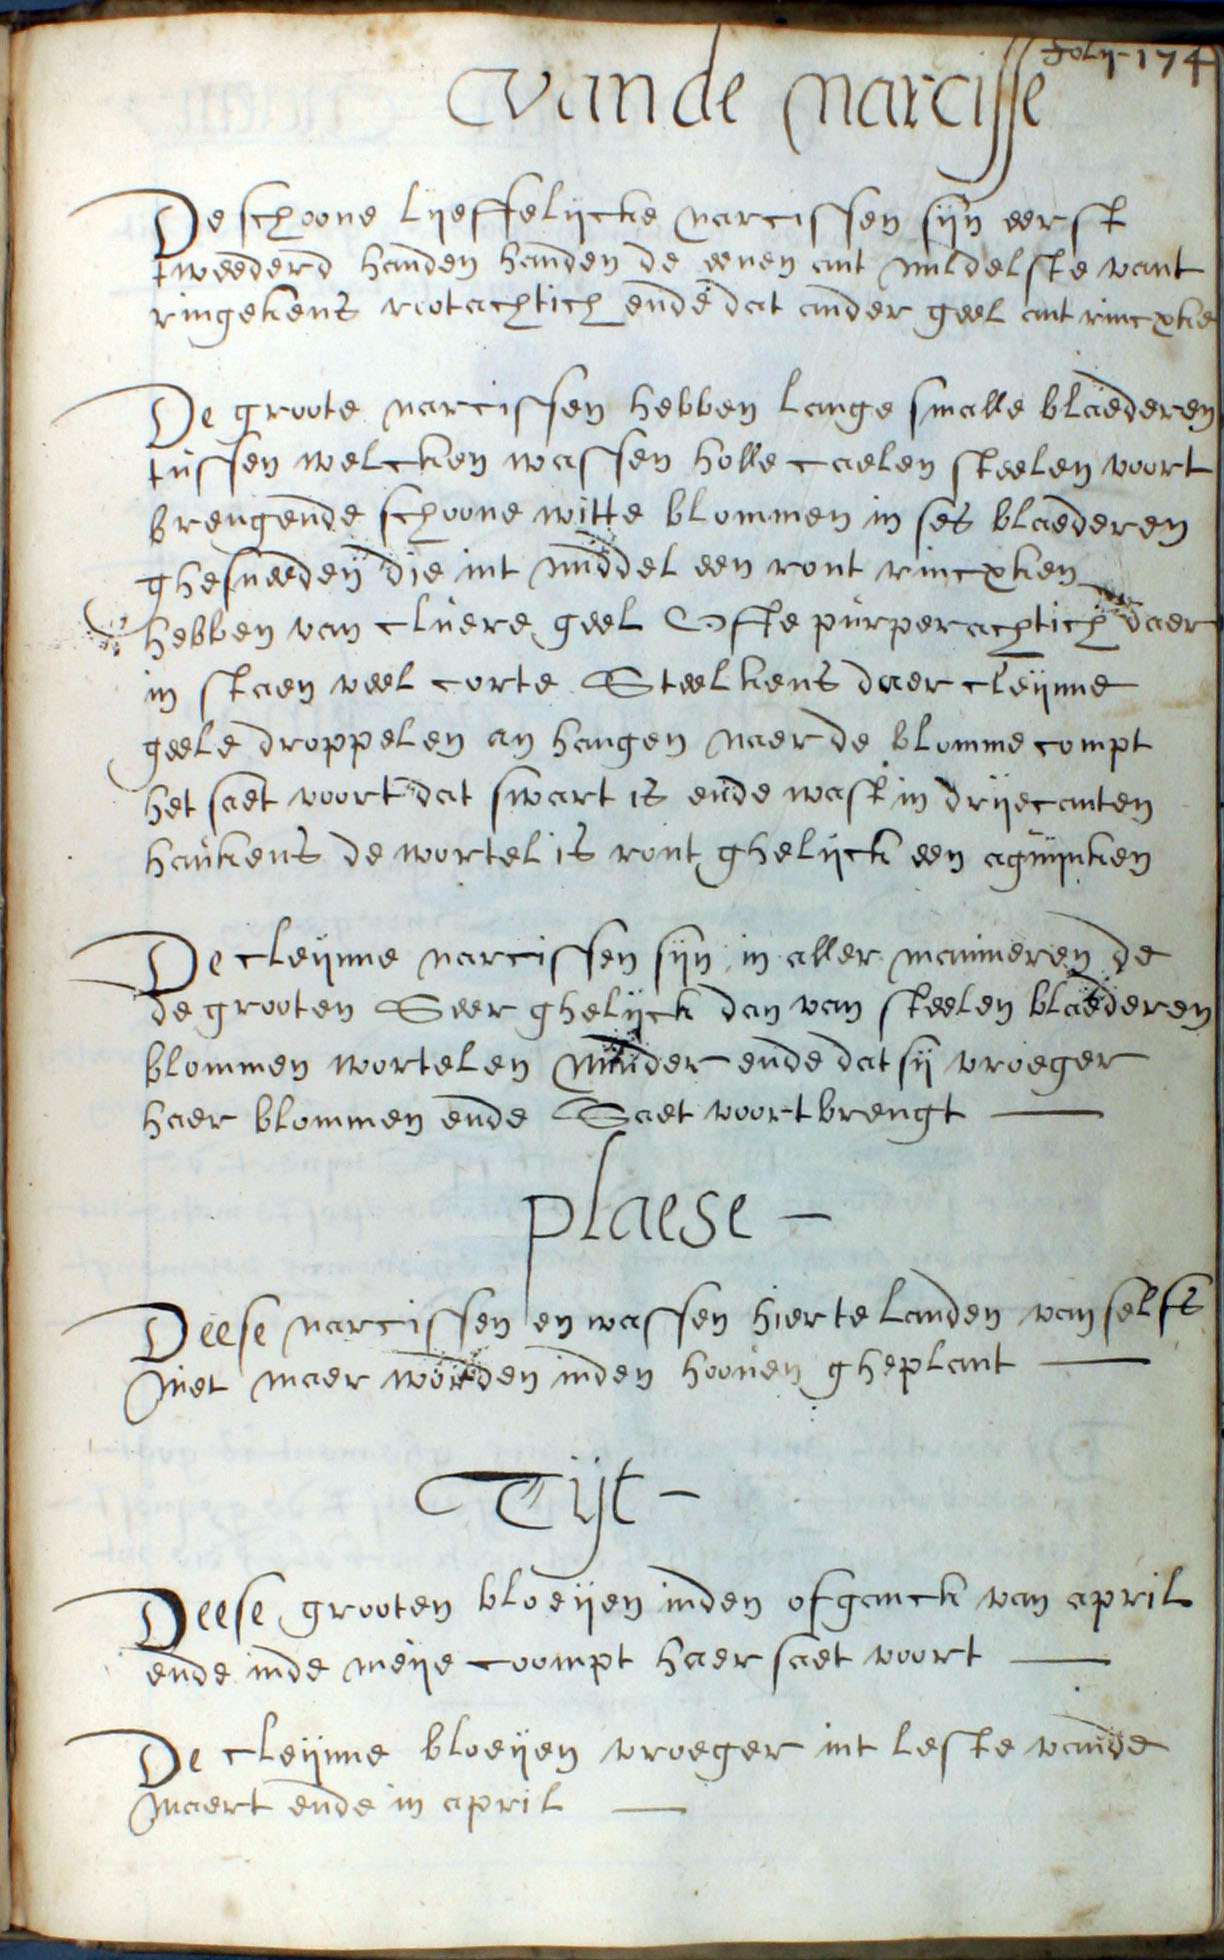 folij - 174
Vande narcisse
De schoone lijeffelijcke narcissen sijn eerst
tweederd handen handen de eenen int middelste vant
ringekens rootachtich ende dat ander geel int rincxke
De groote narcissen hebben lange smalle blaederen
tussen welcken wassen holle caelen steelen voort
brengende schoone witte blommen in ses blaederen
ghesneeden die int middel een ront rincxken
hebben van cluere geel Ofte purperachtich daer
in staen veel corte Steelkens daer cleijnne
geele droppelen an hangen naer de blomme compt
het saet voort dat swart is ende wast in drijecanten
haukens de wortel is ront ghelijck een aguijnken
De cleijnne narcissen sijn in aller mannieren de
de grooten Seer ghelijck dan van steelen blaederen
blommen wortelen minder ende dat sij vroeger
haer blommen ende Saet voort brengt —
plaese —
Deese narcissen en wassen hier te landen van selfs
Niet maer worden inden hooven gheplant —
Tijt —
Deese grooten bloeijen inden ofganck van april
ende inde meije coompt haer saet voort —
De cleijnne bloeijen vroeger int leste vande
Maert ende in april —